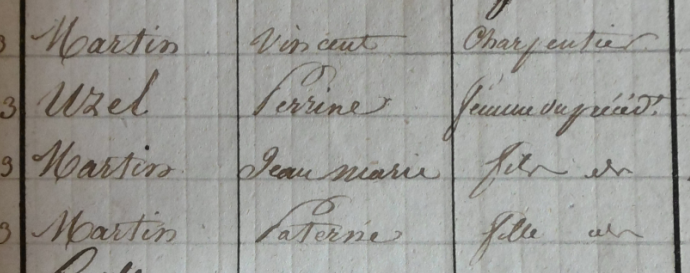 3 Martin Vincent Charpentier
3 Uzel Perrine femme du précédt.
3 Martin Jean marie fils
3 Martin Paterne fille